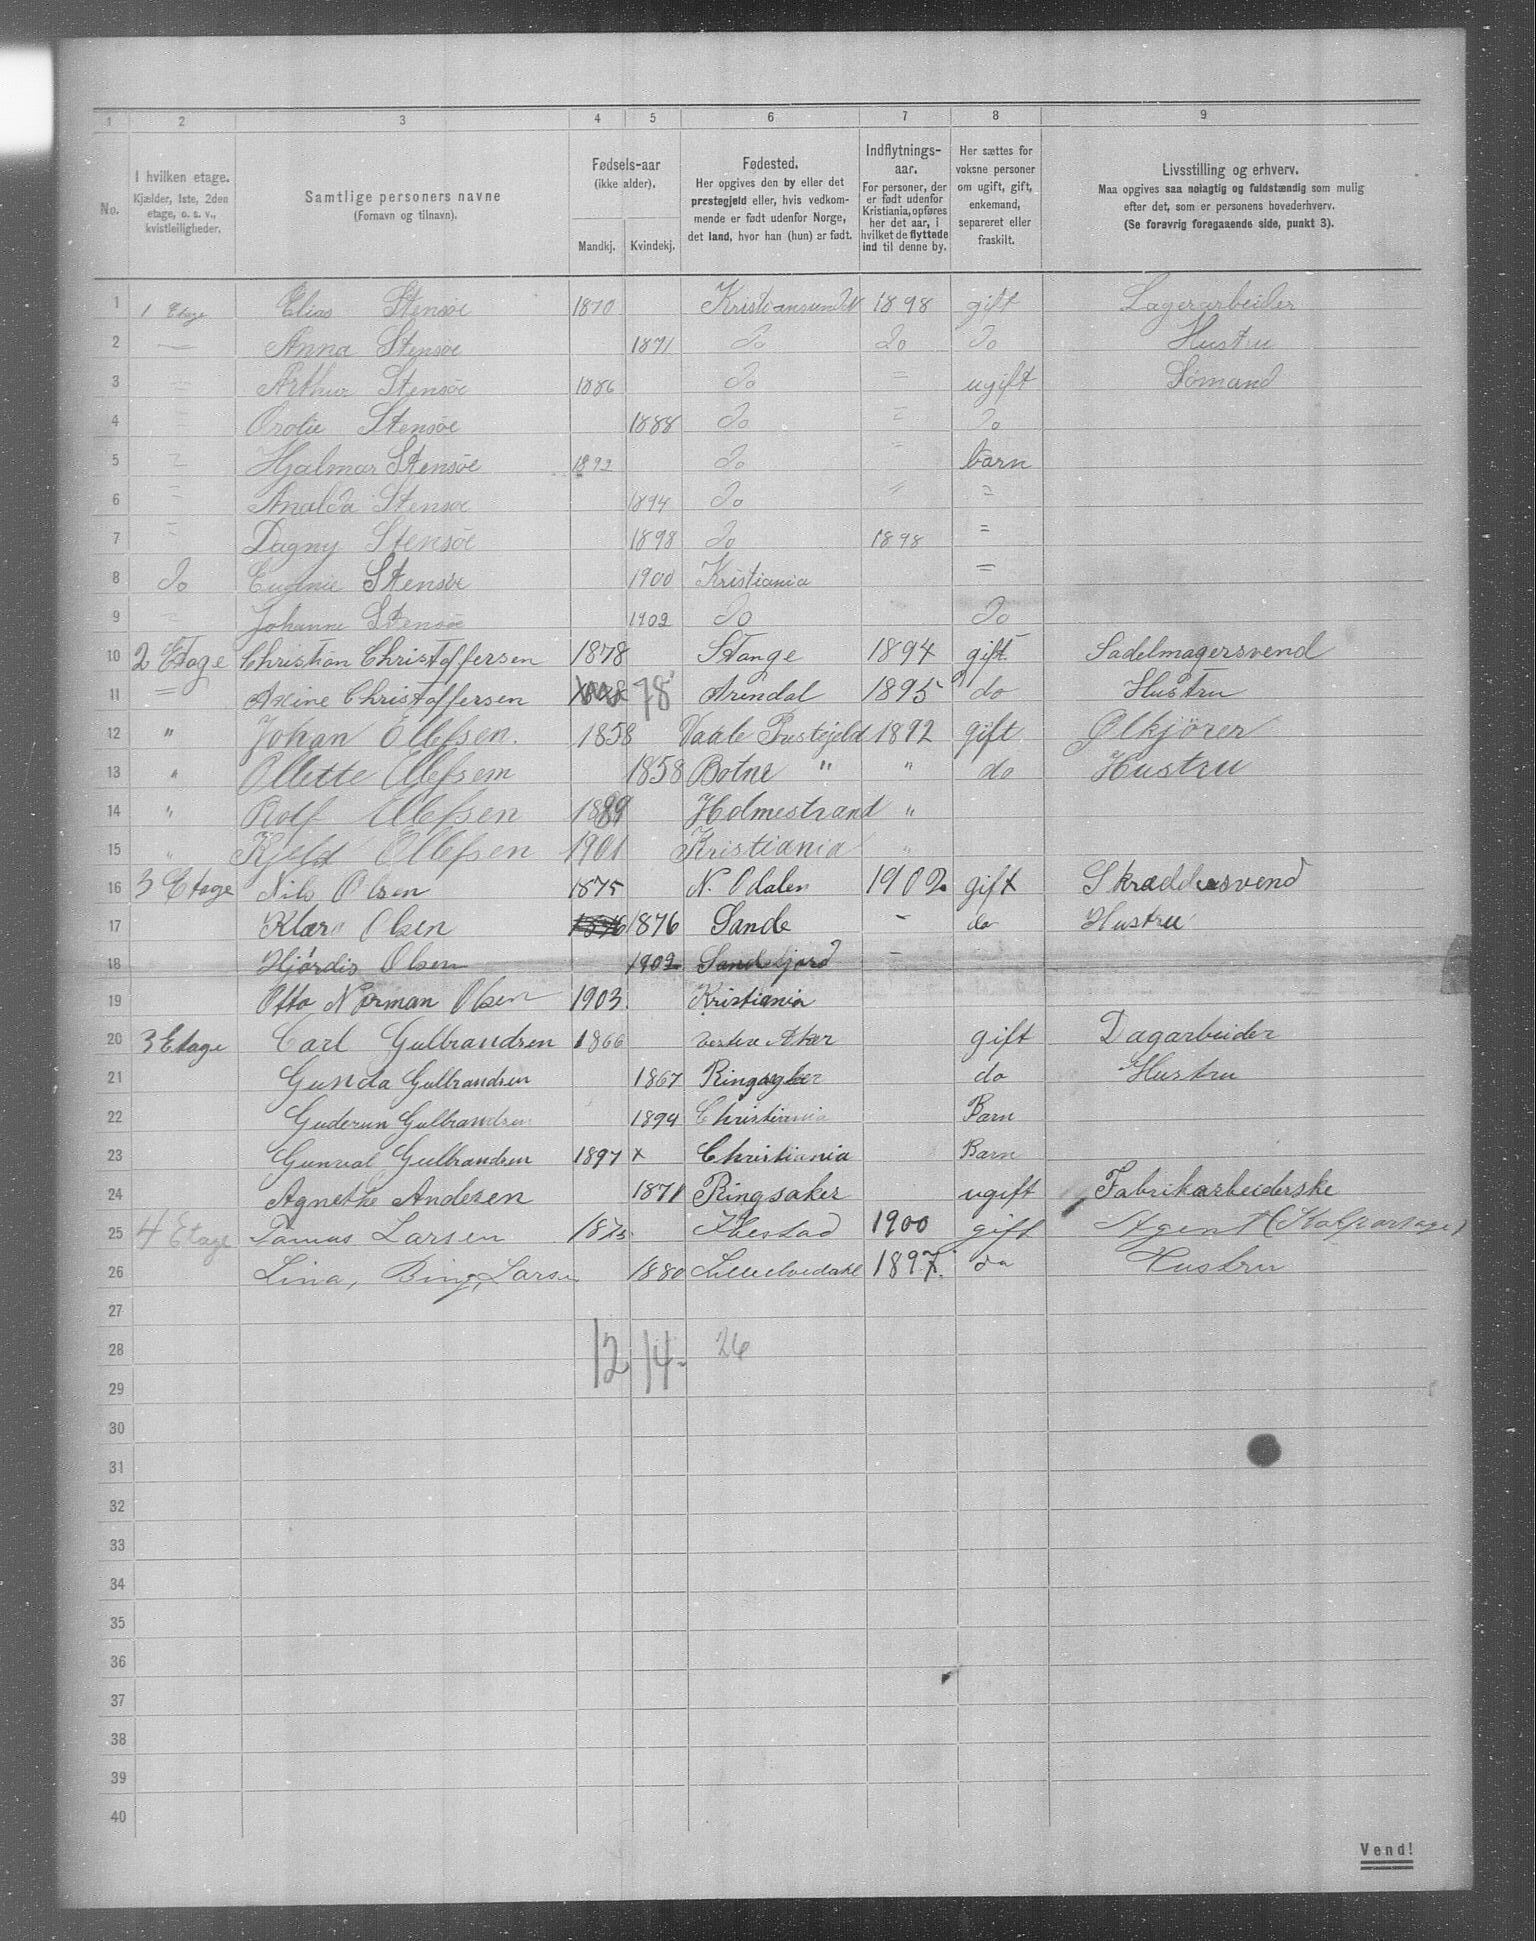 1 2 3 4 5 6 7 8 9
No.
I hvilken etage.
Kjælder, 1ste, 2den
etage, o. s. v.,
kvistleiligheder.
Samtlige personers navne
(Fornavn og tilnavn).
Fødsels-aar
(ikke alder).
Mandkj. Kvindekj.
Fødested.
Her opgives den by eller det
prestegjeld eller, hvis vedkom-
mende er født udenfor Norge,
det land, hvor han (hun) er født.
Indflytnings-
aar.
For personer, der
er født udenfor
Kristiania, opføres
her det aar, i
hvilket de flyttede
ind til denne by.
Her sættes for
voksne personer
om ugift, gift,
enkemand,
separeret eller
fraskilt.
Livsstilling og erhverv.
Maa opgives saa nøiagtig og fuldstændig som mulig
efter det, som er personens hovederhverv.
(Se forøvrig foregaaende side, punkt 3).
1 1 Etage Elias Stensöe 1870 Kristiansund N 1898 gift Lagerarbeider
2 — Anna Stensöe 1871 Do Do Do Hustru
3 = Arthur Stensöe 1886 Do = ugift Sømand
4 = Stensöe 1888 Do = Do
5 = Hjalmar Stensöe 1892 Do " barn
6 = Stensöe 1894 Do " =
7 = Dagny Stensöe 1898 Do 1898 =
8 Do Eugenie Stensöe 1900 Kristiania =
9 = Johanne Stensöe 1902 Do Do
10 2 Etage Christian Christoffersen 1878 Stange 1894 gift Sadelmagersvend
11 = Axine Christoffersen 78 Arendal 1895 do Hustru
12 " Johan Ellefsen. 1858 Vaale Prestejeld 1892 gift Ølkjører
13 " Ollette Ellefsem 1858 Botne " " do Hustru
14 " Rolf Ellefsen 1889 Holmestrand "
15 " Kjeld Ellefsen 1901 Kristiania "
16 3 Etage Nils Olsen 1875 N. Odalen 1902. gift Skræddersvend
17 Klara Olsen 1876 1876 Sande - do Hustru
18 Hjördis Olsen 1902 Sandefjord -
19 Otto Norman Olsen 1903. Kristiania
20 3 Etage Carl Gulbrandsen 1866 Vestre Aker gift Dagarbeider
21 Gunda Gulbrandsen 1867 Ringsager do Hustru
22 Guderun Gulbrandsen 1894 Christiania Barn
23 Gunval Gulbrandsen 1897 x Christiania Barn
24 Agnethe Andersen 1871 Ringsaker ugift Fabrikarbeiderske
25 4 Etage Larsen 1875 Ibestad 1900 gift Agent
26 Lina, Bing, Larsen 1880 1897. do Hustru
27
28 12 14- 26
29
30
31
32
33
34
35
36
37
38
39
40
Vend!